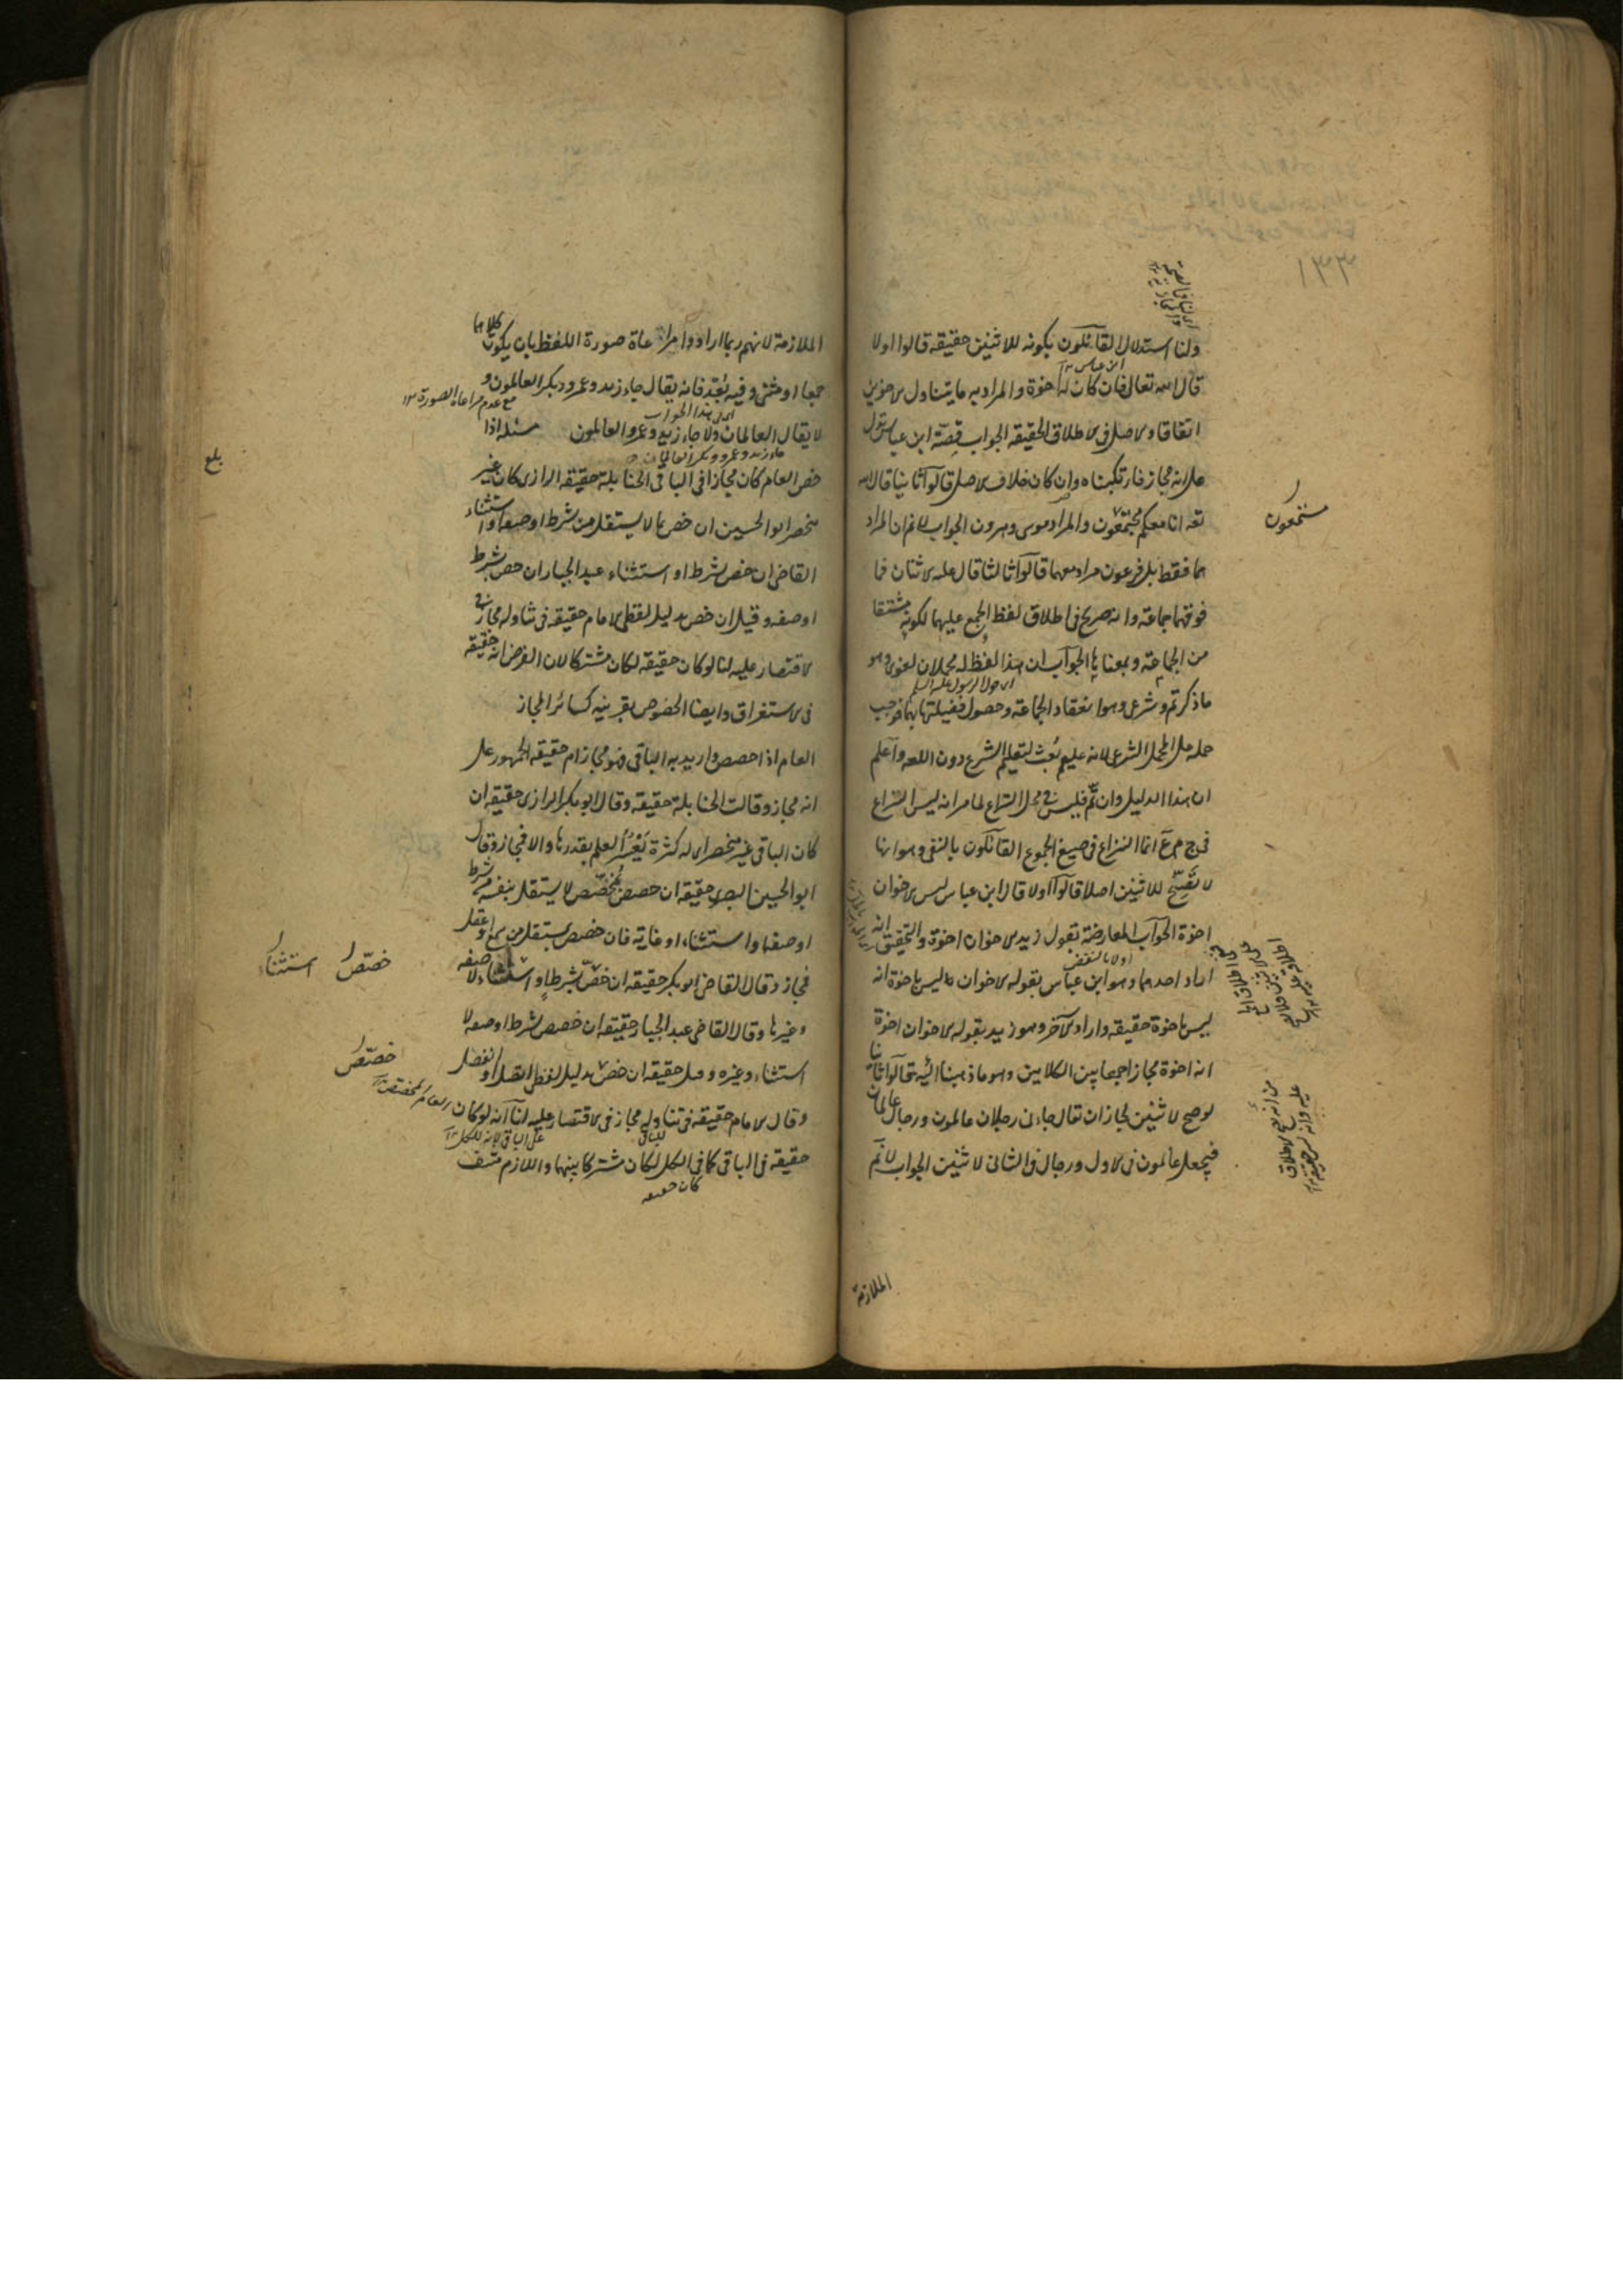 ١٣٣
ولنا استدلال القائلون بكونه للاثنين حقيقة قالوا اولا
ابن عباس
قال الله تعالى فان كان له اخوة والمراد به ما يتناول الاخوين
اتفاقا والاصل فى الاطلاق الحقيقة الجواب قصة ابن عباس تدل
على انه مجاز فارتكبناه وان كان خلاف الاصل قالوا ثانيا قال الله
تعه انا معكم مجتمعون والمراد موسى وهرون الجواب لانم ان المراد
مستمعون
هما فقط بل فرعون مراد معهما قالوا ثالثا قال عليه الاثنان فما
فوقهما جماعة وانه صريح فى اطلاق لفظ الجمع عليهما لكونه مشتقا
من الجماعة وبمعناها الجواب ان هذا اللفظ له محملان لغوى وهو
اى قول الرسول عليه السلم
ما ذكرتم وشرعى وهو انعقاد الجماعة وحصول فضيلتها بهما فوجب
حمله على المحمل الشرعى لانه عليم بعث لتعليم الشرع دون اللغه واعلم
ان هذا الدليل وان تم فليس فى محل النزاع لما مر انه ليس النزاع
فى ج م ع انما النزاع فى صيغ الجموع القائلون بالنفى وهو انها
لا تصح للاثنين اصلا قالوا اولا قال ابن عباس ليس الاخوان
اخوة الجواب المعارضة بقول زيد الاخوان اخوة والتحقيق انه
اراد احدهما وهو ابن عباس بقوله الاخوان ليس باخوة انه
ليس باخوة حقيقة واراد الآخر وهو زيد بقوله الاخوان اخوة
انه اخوة مجازا جمعا بين الكلامين وهو ما ذهبنا اليه قالوا ثانيا
لو صح لاثنين لجاز ان تقال جاءنى رجلان عالمون ورجال عالمان
فيجعل عالمون فى الاول ورجال فى الثانى لاثنين الجواب لانم
الملازمة
الملازمة لانهم ربما ارادوا مراعاة صورة اللفظ بان يكون كلاهما
جمعا او مثنى وفيه بعد فانه يقال جاء زيد وعمرو وبكر العالمون و
مع عدم مراعاة الصورة ١٢
اى هذا الجواب
لا يقال العالمان ولا جاء زيد وعمرو العالمون مسئله اذا
جاء زيد وعمرو وبكر العالمان
بلغ
خص العام كان مجازا فى الباقى الحنابلة حقيقة الرازى كان غير
منحصر ابو الحسين ان خص بما لا يستقل من شرط او صفة او استثناء
القاضى ان خص بشرط او استثناء عبد الجبار ان خص بشرط
او صفه وقيل ان خص بدليل لفظى الامام حقيقة فى تناوله مجاز فى
الاقتصار عليه لنا لو كان حقيقة لكان مشتركا لان الفرض انه حقيقة
فى الاستغراق وايضا الخصوص بقرينه كسائر المجاز
العام اذا خصص واريد به الباقى فهو مجاز ام حقيقة الجمهور على
انه مجاز وقالت الحنابلة حقيقة وقال ابو بكر الرازى حقيقة ان
كان الباقى غير منحصر اى له كثرة يعسر العلم بقدرها والا فمجاز وقال
ابو الحسين البصرى حقيقة ان خصص بمخصص لا يستقل بنفسه من شرط
او صفة او استثناء او غاية فان خصص بمستقل من سمع او عقل
فمجاز وقال القاضى ابو بكر حقيقة ان خص بشرط او استثناء لا صفه
خصص استثناء
وغيرها وقال القاضى عبد الجبار حقيقة ان خصص بشرط او صفه لا
استثناء وغيره وقيل حقيقة ان خص بدليل لفظى اتصل او انفصل
خصص
وقال الامام حقيقة فى تناوله مجاز فى الاقتصار عليه لنا انه لو كان
العام المخصص
حقيقة فى الباقى كما فى الكل لكان مشتركا بينهما واللازم منتف
كان حقيقة